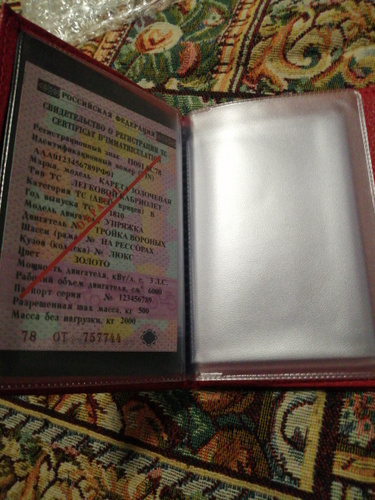 РОССИЙСКАЯ ФЕДЕРАЦИЯ
СВИДЕТЕЛЬСТВО О РЕГИСТРАЦИИ ТС
CERTIFICAT D'IMMATRICULATION
Регистрационный знак
Идентификационный номер (VIN)
ААА0123456789РФ01
Марка, модель КАРЕТА ЗОЛОЧЕНАЯ
Тип ТС ЛЕГКОВОЙ КАБРИОЛЕТ
Категория ТС (ABCD, прицеп) B
Год выпуска ТС 1820
Модель двигателя УПРЯЖКА
Двигатель № ТРОЙКА ВОРОНЫХ
Шасси (рама) № НА РЕССОРАХ
Кузов (коляска) № ЛЮКС
Цвет ЗОЛОТО
Мощность двигателя, кВт/л. с. 3 Л.С.
Рабочий объем двигателя, см³ 6000
Паспорт серия № 123456789
Разрешенная max масса, кг 500
Масса без нагрузки, кг 2000
78 ОТ 757744